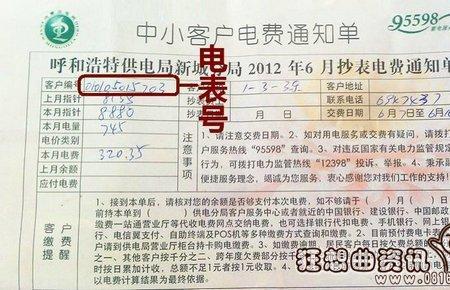 中小客户电费通知单
95598
呼和浩特供电局新城 局 2012 年 6 月抄表电费通知单
客户编 010105015703
1-3-39
客户地址
上月指针 8135
联系电话 6967437
本月指针 8880
月 日
交费日期 6月7日 6月16
本月电量 745
电价类别
本月电费 320.35
上月余额
应付电费
电表号
注意事项
1、请注意交费日期。2、如对用电服务或交费有疑问，请拨打
户服务热线 "95598" 查询。3、对违反国家有关电力监管规定
行为，请拨打电力监管热线 "12398" 投诉、举报。4、秉承
便捷服务理念，竭诚为您服务。衷心感谢您对我们工作的支持！
客户缴费提醒
1、接到本单后，请核对您的余额是否够支付本次电费，如不够请于 月
前持本单到（ ）供电分局客户服务中心或者就近的中国银行、建设银行、中国邮政
缴费一站通营业厅等代收电费网点交纳电费，也可选择银行代扣电费、手机银行、网上银
行、电信翼支付、自助终端及POS机等多种缴费方式查询和缴费。2、目前预付费电卡表
户请到供电局营业厅柜台持卡购电缴费。3、如缴费逾期，居民客户每日按欠费总额
一，其他客户按千分之二，跨年度欠费部分按千分
时按日累加计收，总额不足1元者按1元收取。4、
以电费计算结果为最终依据。
狂想曲资讯